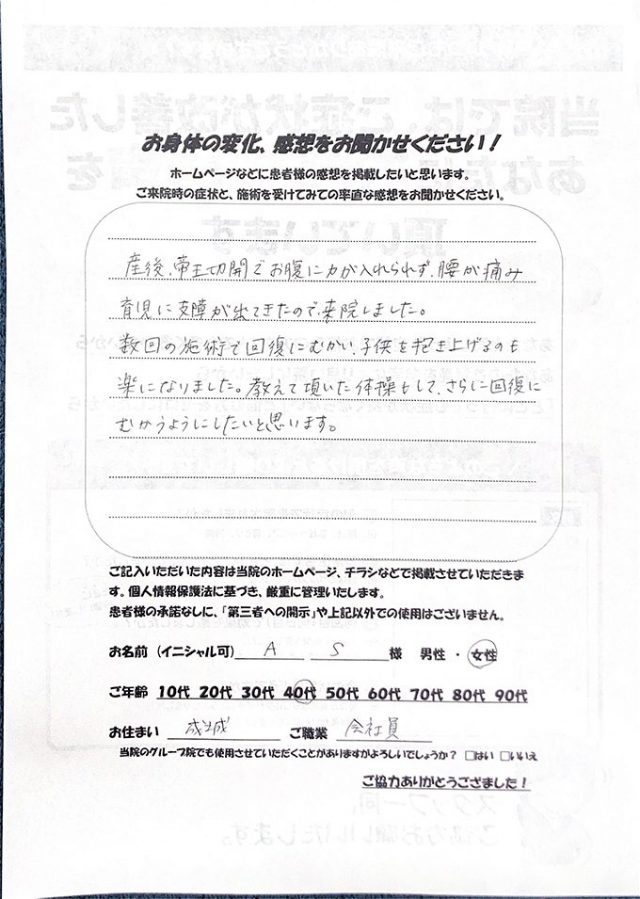 お身体の変化、感想をお聞かせください！
ホームページなどに患者様の感想を掲載したいと思います。
ご来院時の症状と、施術を受けてみての率直な感想をお聞かせください。
産後、帝王切開でお腹に力が入れられず、腰が痛み
育児に支障が出てきたので来院しました。
数回の施術で回復にむかい、子供を抱き上げるのも
楽になりました。教えて頂いた体操もして、さらに回復に
むかうようにしたいと思います。
ご記入いただいた内容は当院のホームページ、チラシなどで掲載させていただきま
す。個人情報保護法に基づき、厳重に管理いたします。
患者様の承諾なしに、「第三者への開示」や上記以外での使用はございません。
お名前（イニシャル可） A S 様 男性 ・ 女性
ご年齢 10代 20代 30代 40代 50代 60代 70代 80代 90代
お住まい 成城 ご職業 会社員
当院のグループ院でも使用させていただくことがありますがよろしいでしょうか？ □はい □いいえ
ご協力ありがとうござました！